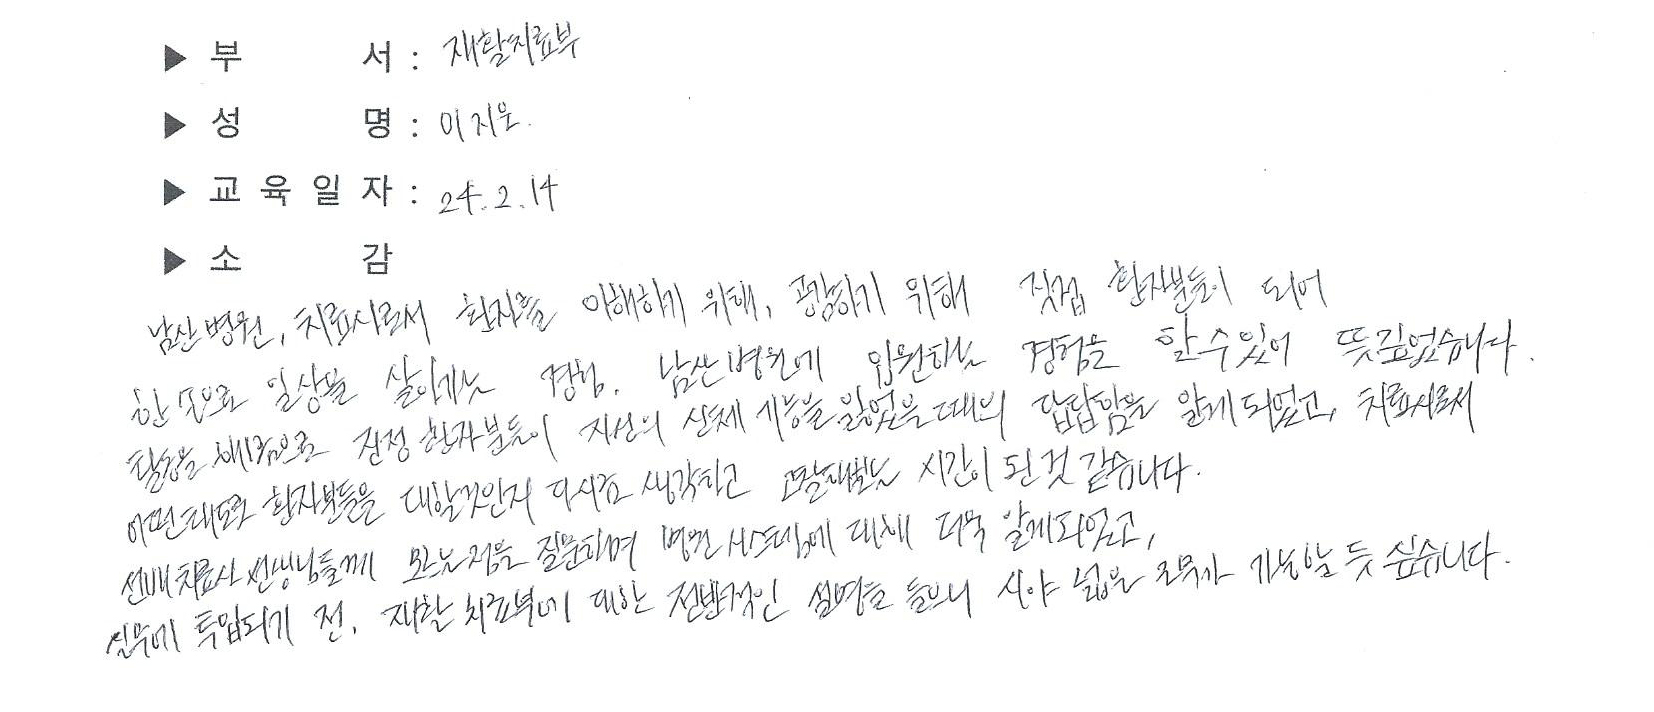 ▶ 부 서 : 재활치료부
▶ 성 명 : 이지운
▶ 교육일자 : 24. 2. 14
▶ 소 감
남산병원, 치료사로서 환자를 이해하기 위해, 공감하기 위해 직접 환자분들이 되어
한 손으로 일상을 살아가는 경험. 남산병원에 입원하는 경험을 할 수 있어 뜻깊었습니다.
활동을 해봄으로 진정 환자분들이 자신의 신체 기능을 잃었을 때의 답답함을 알게 되었고, 치료사로서
어떤 태도로 환자분들을 대할것인지 다시금 생각하고 고찰해보는 시간이 된 것 같습니다.
선배 치료사 선생님들께 모르는 점을 질문하며 병원 시스템에 대해 더욱 알게되었고,
실무에 투입되기 전, 재활 치료부에 대한 전반적인 설명을 들으니 시야 넓은 근무가 가능할 듯 싶습니다.